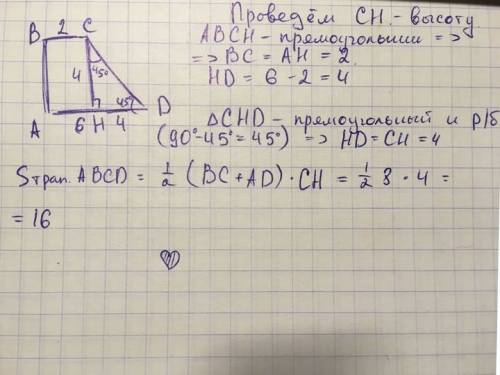 Проведём CH - высоту
ABCH - прямоугольник =>
=> BC = AH = 2.
HD = 6 - 2 = 4
△CHD - прямоугольный и р/б
(90° - 45° = 45°) => HD = CH = 4
Sтрап. ABCD = 1/2 (BC + AD) · CH = 1/2 8 · 4 =
= 16
B 2 C
4 45°
45° D
A 6 H 4